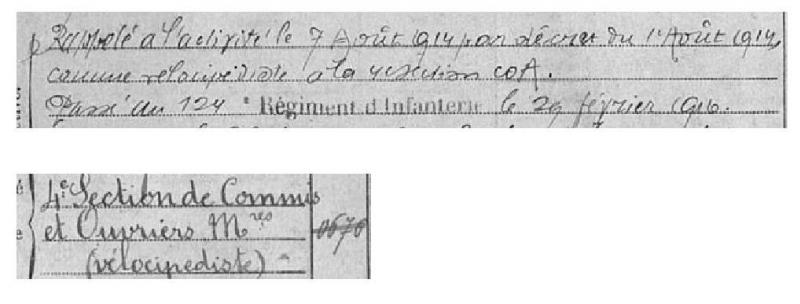 Rappelé à l'activité le 7 Août 1914 par décret du 1er Août 1914,
comme vélocipédiste à la 4e section COA.
Passé au 124e Régiment d'Infanterie le 29 février 1916.
4e Section de Commis
et Ouvriers Mres 0670
(vélocipédiste)